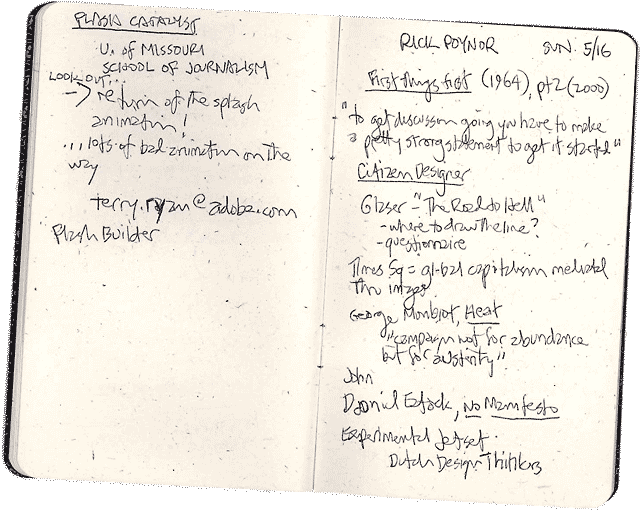 FLASH CATALYST
U. of MISSOURI
SCHOOL OF JOURNALISM
LOOK OUT...
→ return of the splash
animation!
... lots of bad animation on the
way
terry.ryan@adobe.com
Flash Builder
RICK POYNOR SUN. 5/16
First things first (1964), pt 2 (2000)
"to get discussion going you have to make
a pretty strong statement to get it started"
Citizen Designer
Glaser - "The Road to Hell"
- where to draw the line?
- questionnaire
Times Sq = global capitalism mediated
thru images
George Monbiot, Heat
"campaign not for abundance
but for austerity"
John
Daniel Eatock, No Manifesto
Experimental Jetset
Dutch Design Thinkers